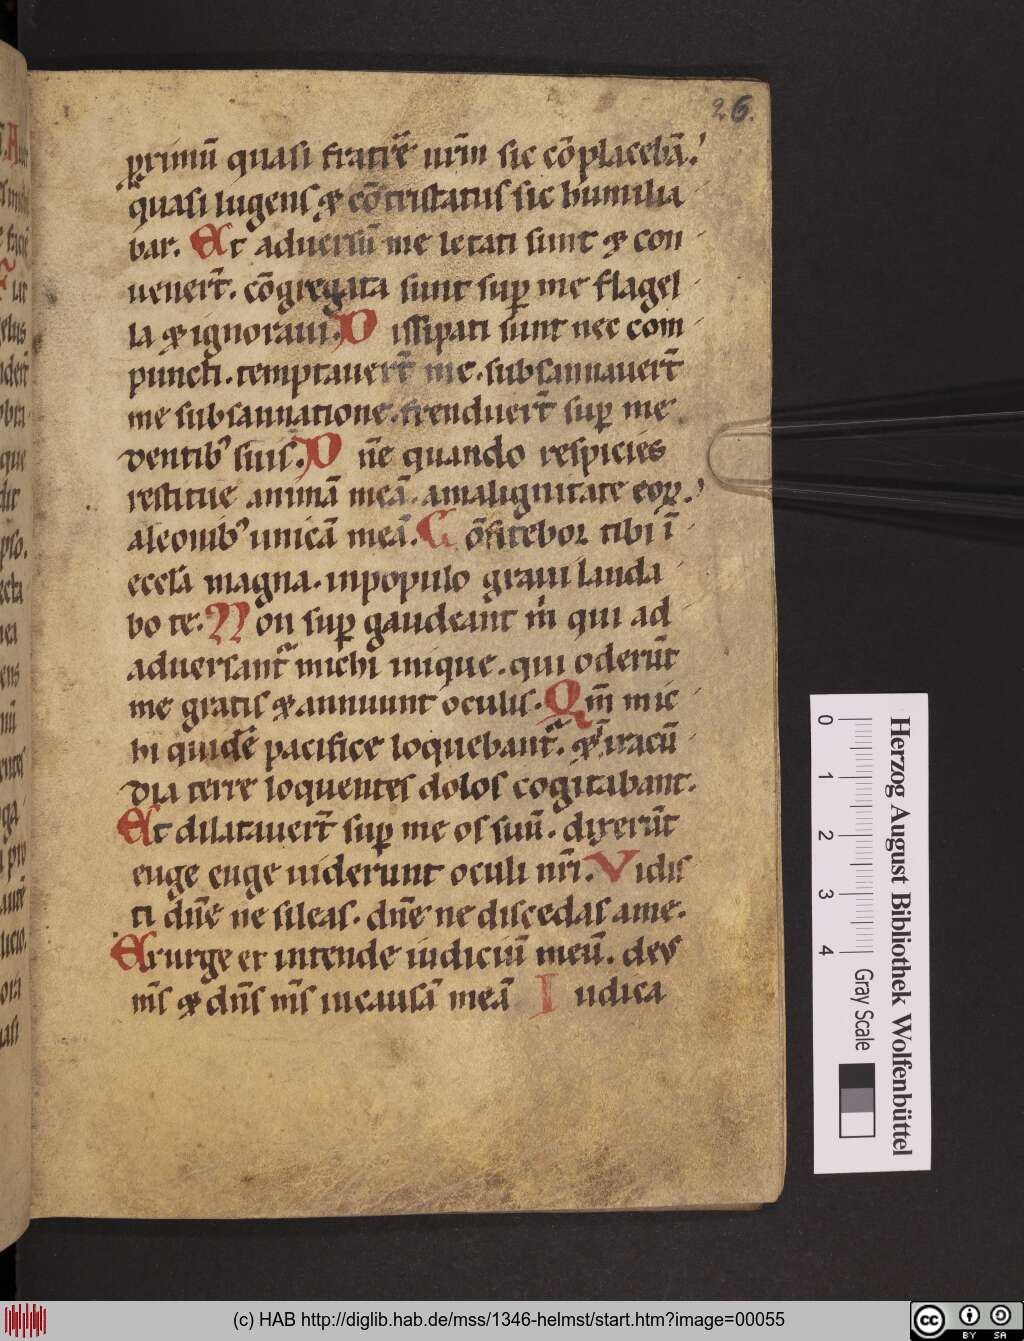 26.
p̱rimū quasi fratrē urm̄ sic cōplacebā.
quasi lugens & cōtristatus sic humilia
bar. Et aduersū me letati sunt & con
uenert̄. cōgregata sunt sup̱ me flagel
la & ignoraui. D issipati sunt nec com
puncti. temptauert̄ me. subsannauert̄
me subsannatione. frenduert̄ sup̱ me
dentib᾽ suis. D n̄e quando respicies
restitue animā meā. amalignitate eoꝝ.
aleonib᾽ unicā meā. C ōfitebor tibi ī
eccl̄a magna. inpopulo graui lauda
bo te. N on sup̱ gaudeant m̄ qui ad
aduersant᷑ michi inique. qui oderūt
me gratis & annuunt oculis. Qm̄ mic
hi quidē pacifice loquebant᷑. & iracū
dia terre loquentes dolos cogitabant.
Et dilatauert̄ sup̱ me os suū. dixerūt
euge euge uiderunt oculi nr̄i. Vidis
ti dn̄e ne sileas. dn̄e ne discedas ame.
Exurge et intende iudiciū meū. deus
m̄s & dn̄s m̄s incausā meā I udica
Herzog August Bibliothek Wolfenbüttel
0 1 2 3 4 Gray Scale
(c) HAB http://diglib.hab.de/mss/1346-helmst/start.htm?image=00055
cc BY SA